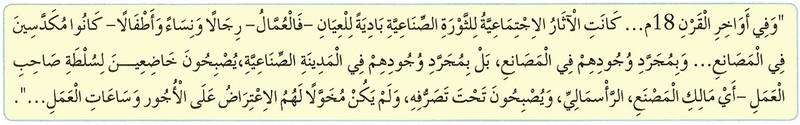 "وَفِي أَوَاخِرِ الْقَرْنِ 18م... كَانَتِ الْآثَارُ الِاجْتِمَاعِيَّةُ لِلثَّوْرَةِ الصِّنَاعِيَّةِ بَادِيَةً لِلْعِيَانِ –فَالْعُمَّالُ– رِجَالًا وَنِسَاءً وَأَطْفَالًا– كَانُوا مُكَدَّسِينَ
فِي الْمَصَانِعِ... وَبِمُجَرَّدِ وُجُودِهِمْ فِي الْمَصَانِعِ، بَلْ بِمُجَرَّدِ وُجُودِهِمْ فِي الْمَدِينَةِ الصِّنَاعِيَّةِ،يُصْبِحُونَ خَاضِعِيـــنَ لِسُلْطَةِ صَاحِبِ
الْعَمَلِ –أَيْ مَالِكِ الْمَصْنَعِ، الرَّأْسمَالِيِّ، وَيُصْبِحُونَ تَحْتَ تَصَرُّفِهِ، وَلَمْ يَكُنْ مُخَوَّلًا لَهُمُ الِاعْتِرَاضُ عَلَى الْأُجُورِ وَسَاعَاتِ الْعَمَلِ...".